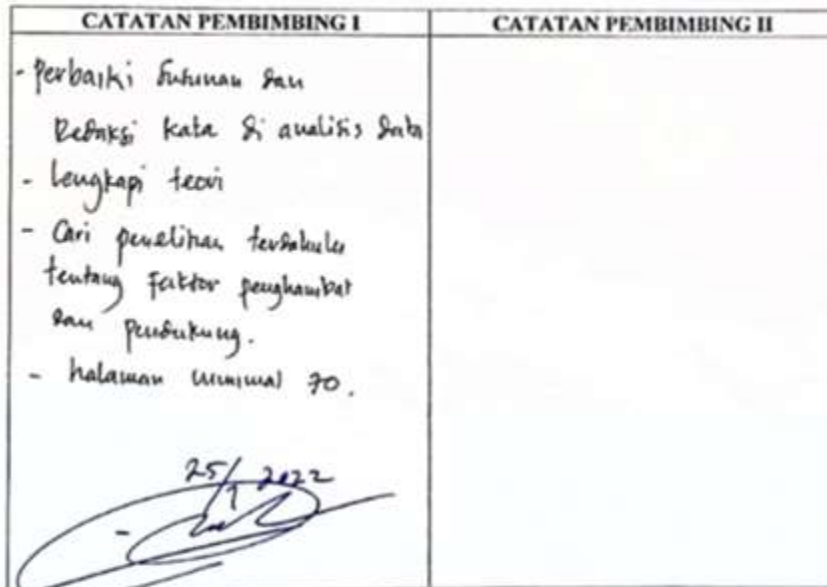 CATATAN PEMBIMBING I
CATATAN PEMBIMBING II
- Perbaiki susunan dan
Redaksi kata di analisis data
- lengkapi teori
- Cari penelitian terdahulu
tentang Faktor penghambat
dan pendukung.
- halaman minimal 70.
25/1 2022